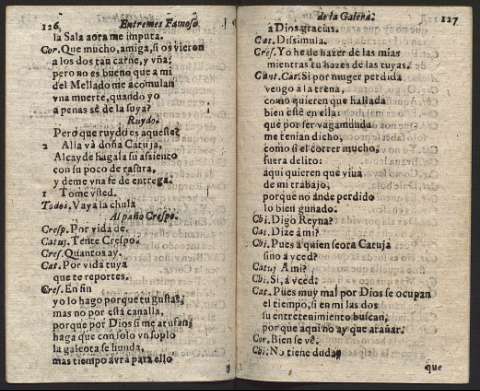 126 Entremes Famoso
la Sala aora me imputa.
Cor. Que mucho, amiga, si os vieron
a los dos tan carne, y vña;
pero no es bueno que a mi
del Mellado me acomulan
vna muerte, quando yo
a penas sè de la suya?
Ruydo.
Pero que ruydo es aqueste?
2 Alla và doña Catuja,
Alcayde hagala su assiento
con su poco de rastra,
y deme vna fe de entrega.
1 Tome vsted.
Todos. Vaya la chula
Al paño Crespo.
Cresp. Por vida de.
Catuj. Tente Crespo.
Cres. Quantos ay.
Cat. Por vida tuya
que te reportes.
Cres. En fin
yo lo hago porque tu gustas,
mas no por esta canalla,
porque por Dios si me atufan,
haga que con solo vn soplo
la galeota se hunda,
mas tiempo avrà para ello
de la Galera. 127
a Dios gracias.
Cat. Dissimula.
Cres. Yo he de hazer de las mias
mientras tu hazes de las tuyas.
Cant. Cat. Si por muger perdida
vengo a la trena,
como quieren que hallada
bien estè en ella:
que por ser vagamunda
me tenian dicho,
como si el correr mucho,
fuera delito:
aqui quieren que viua
de mi trabajo,
porque no ande perdido
lo bien gunado.
Chi. Digo Reyna?
Cat. Dize a mi?
Chi. Pues a quien seora Catuja
sino a vced?
Catuj A mi?
Chi. Si, a vced:
Cat. Pues muy mal por Dios se ocupan
el tiempo, si en mi las dos
su entretenimiento buscan,
porque aqui no ay que arañar.
Cor. Bien se vè.
Chi. No tiene duda
que